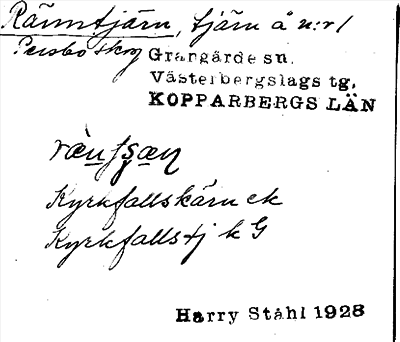 Ränntjärn, tjärn å n:r 1
Persbo skog
Grangärde sn.
Västerbergslags tg.
KOPPARBERGS LÄN
Kyrkfallskärn ek
Kyrkfallstj k G
Harry Ståhl 1928